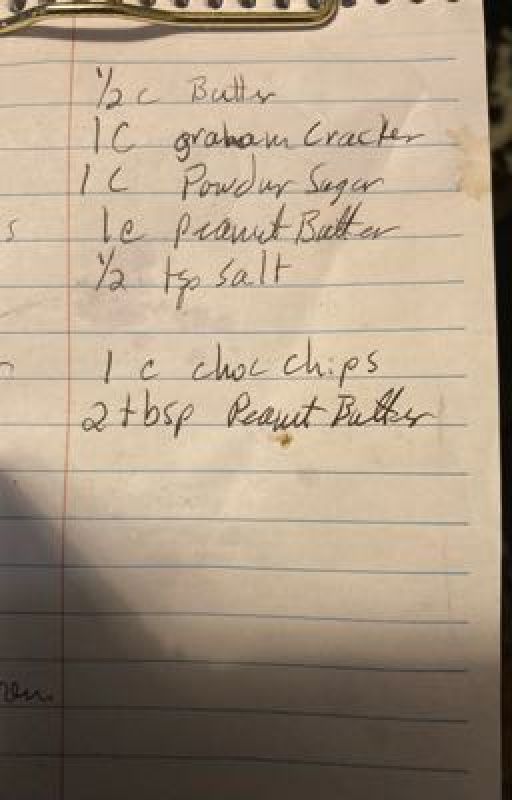 1/2 c Butter
1 C graham Cracker
1 C Powdur Sugar
s
1c peanut Butter
1/2 tsp salt
1 c choc chips
2 tbsp Peanut Butter